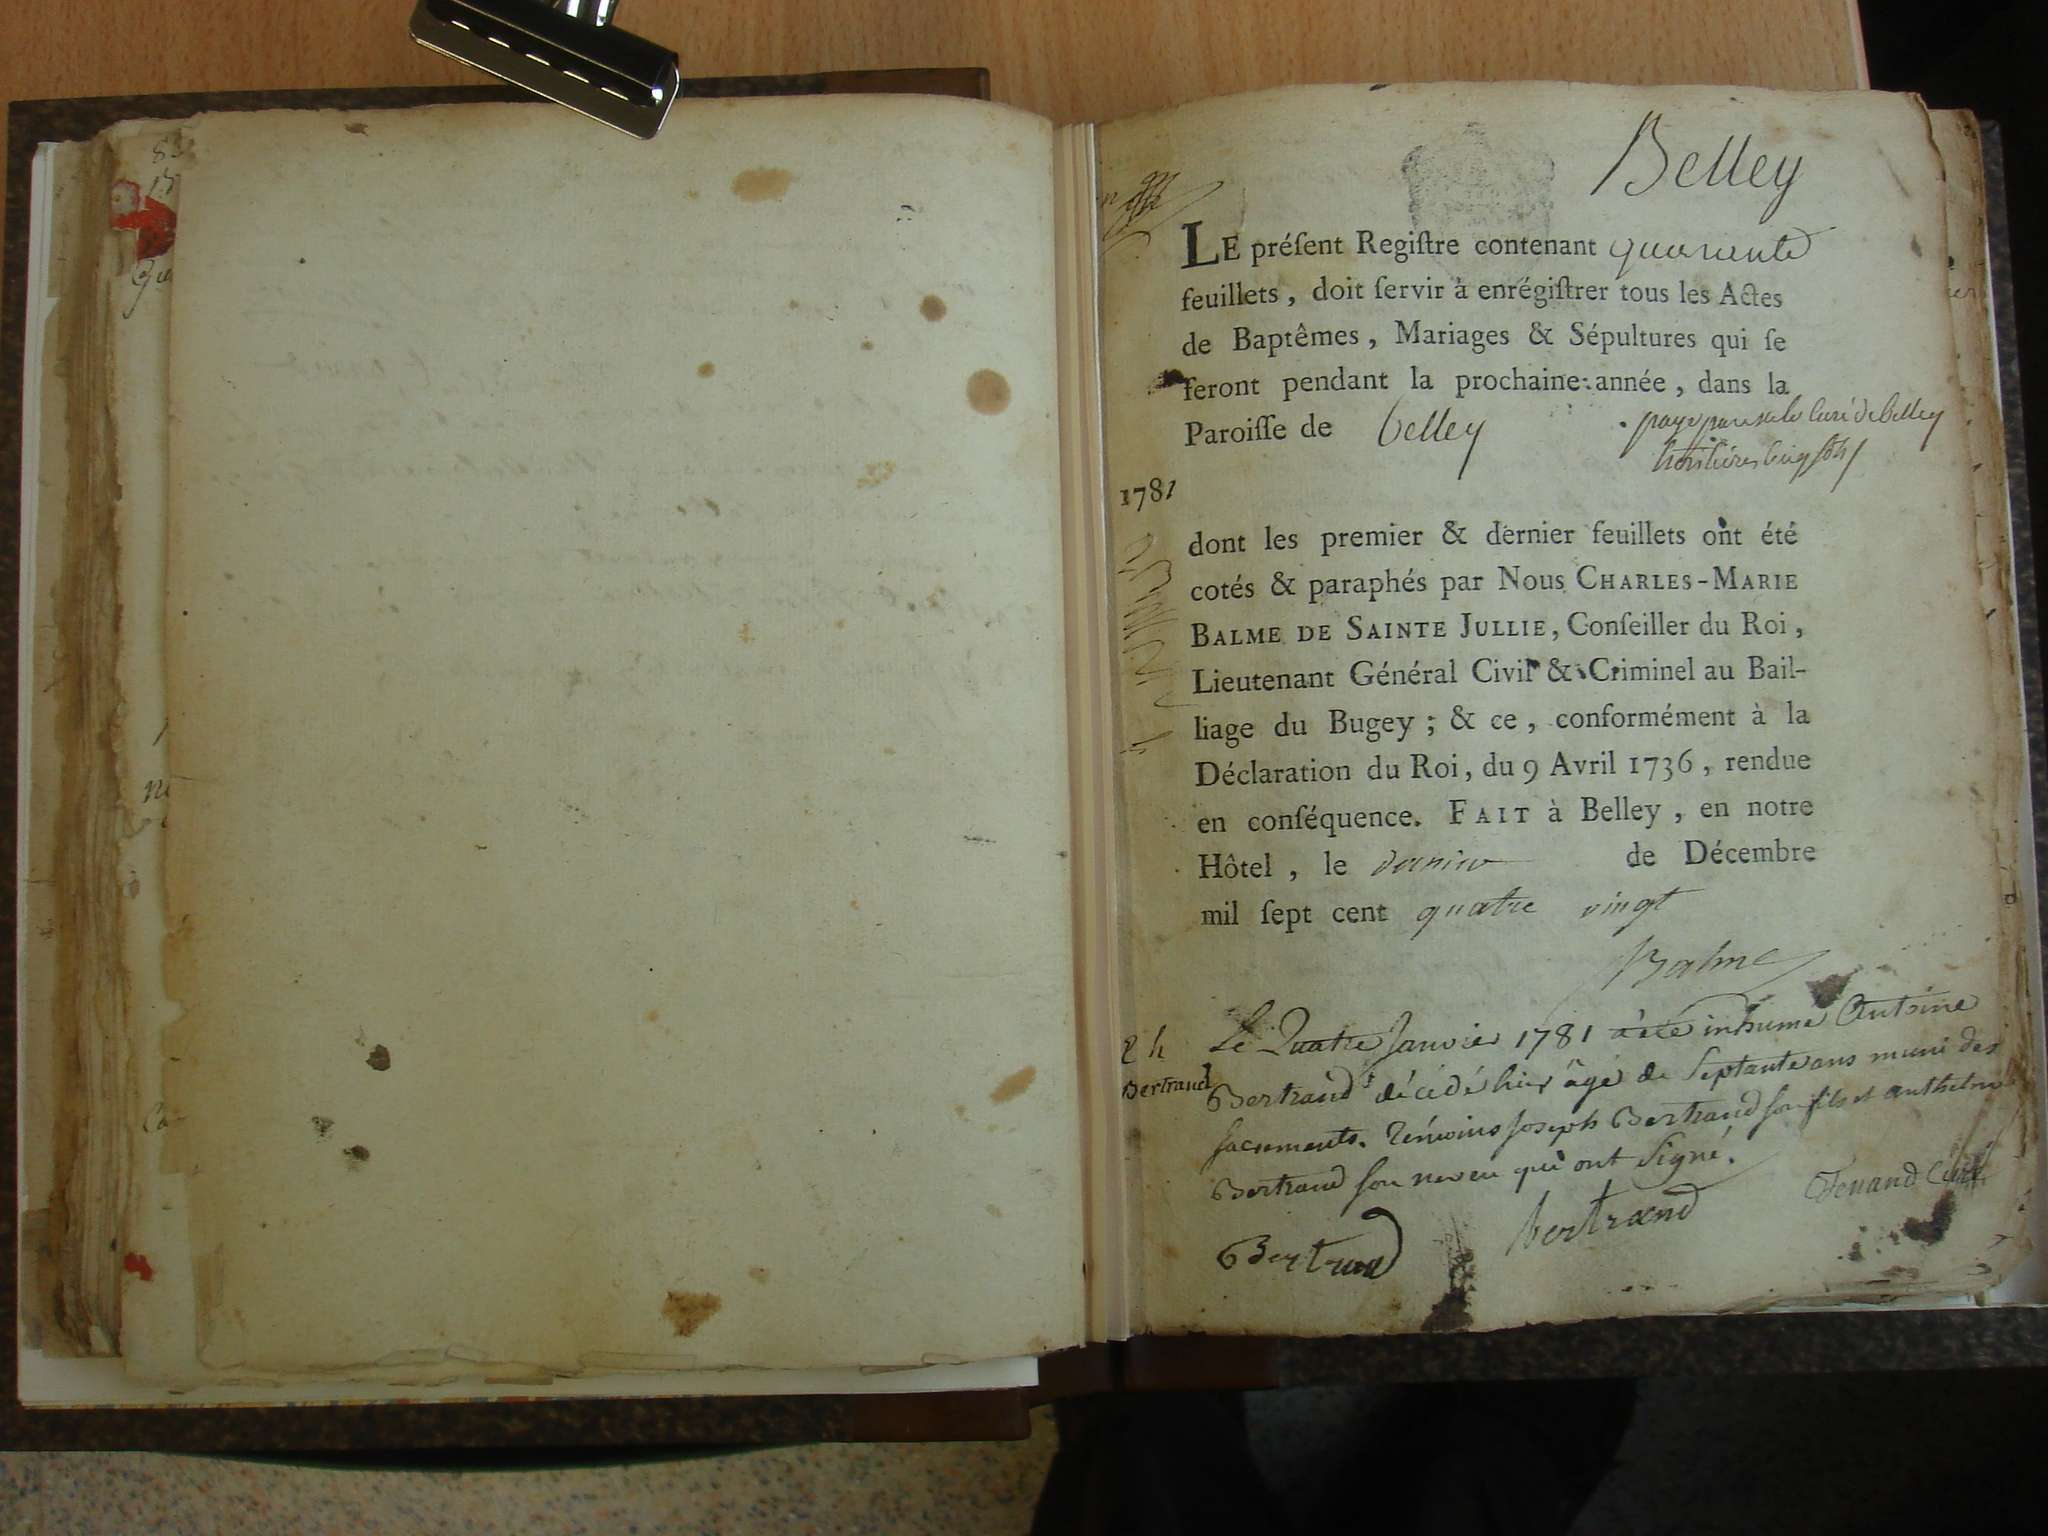 Belley
LE préſent Regiſtre contenant quarante
feuillets, doit ſervir à enrégiſtrer tous les Actes
de Baptêmes, Mariages & Sépultures qui ſe
feront pendant la prochaine année, dans la
Paroiſſe de belley
paye par le Curé de belley
trois livres cinq
1781
dont les premier & dernier feuillets ont été
cotés & paraphés par Nous CHARLES-MARIE
BALME DE SAINTE JULLIE, Conſeiller du Roi,
Lieutenant Général Civil & Criminel au Bail-
liage du Bugey ; & ce, conformément à la
Déclaration du Roi, du 9 Avril 1736, rendue
en conſéquence. FAIT à Belley, en notre
Hôtel, le dernier de Décembre
mil ſept cent quatre vingt
Balme
Le Quatre Janvier 1781 a été inhumé Antoine
Bertrand
Bertrand décédé hier âgé de Septante ans muni des
sacrements. Témoins joseph Bertrand son fils et anthelme
Bertrand son neveu qui ont Signé.
Bertrand bertrand Curé